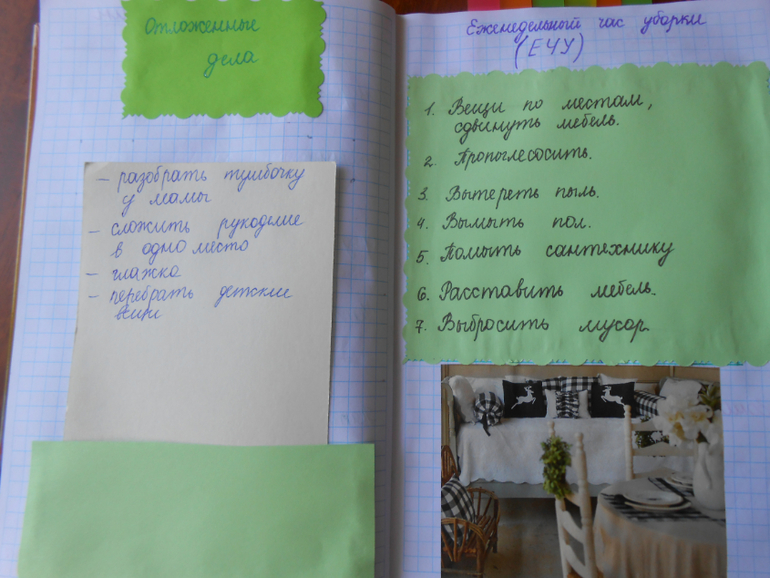 Отложенные
дела
- разобрать тумбочку
у мамы
- сложить рукоделие
в одно место
- глажка
- перебрать детские
вещи
Еженедельный час уборки
(ЕЧУ)
1. Вещи по местам,
сдвинуть мебель.
2. Пропоглесосить.
3. Вытереть пыль.
4. Вымыть пол.
5. Помыть сантехнику
6. Расставить мебель.
7. Выбросить мусор.